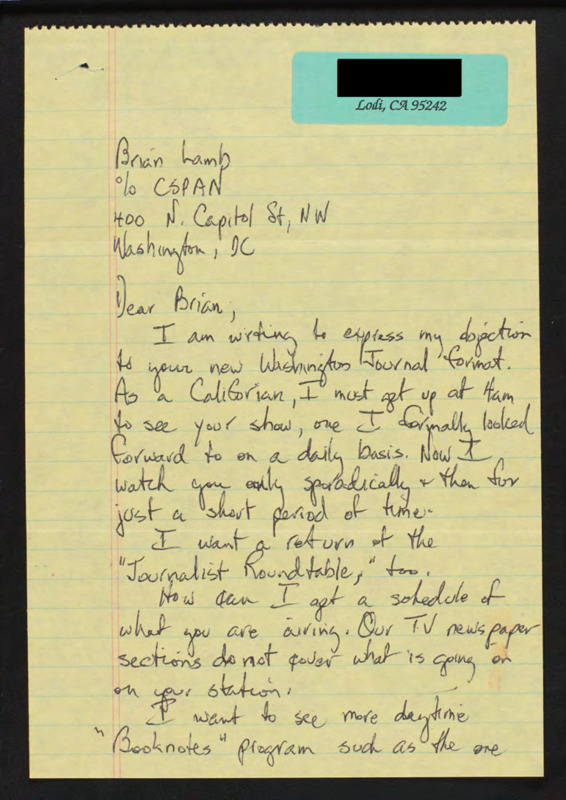 Lodi, CA 95242
Brian Lamb
c/o CSPAN
400 N. Capitol St, NW
Washington, DC
Dear Brian,
I am writing to express my objection
to your new Washington Journal format.
As a Califorian, I must get up at 4am
to see your show, one I formally looked
forward to on a daily basis. Now I
watch you only sporadically & then for
just a short period of time.
I want a return of the
"Journalist Roundtable," too.
How can I get a schedule of
what you are airing. Our TV newspaper
sections do not cover what is going on
on your station.
I want to see more daytime
"Booknotes" program such as the one